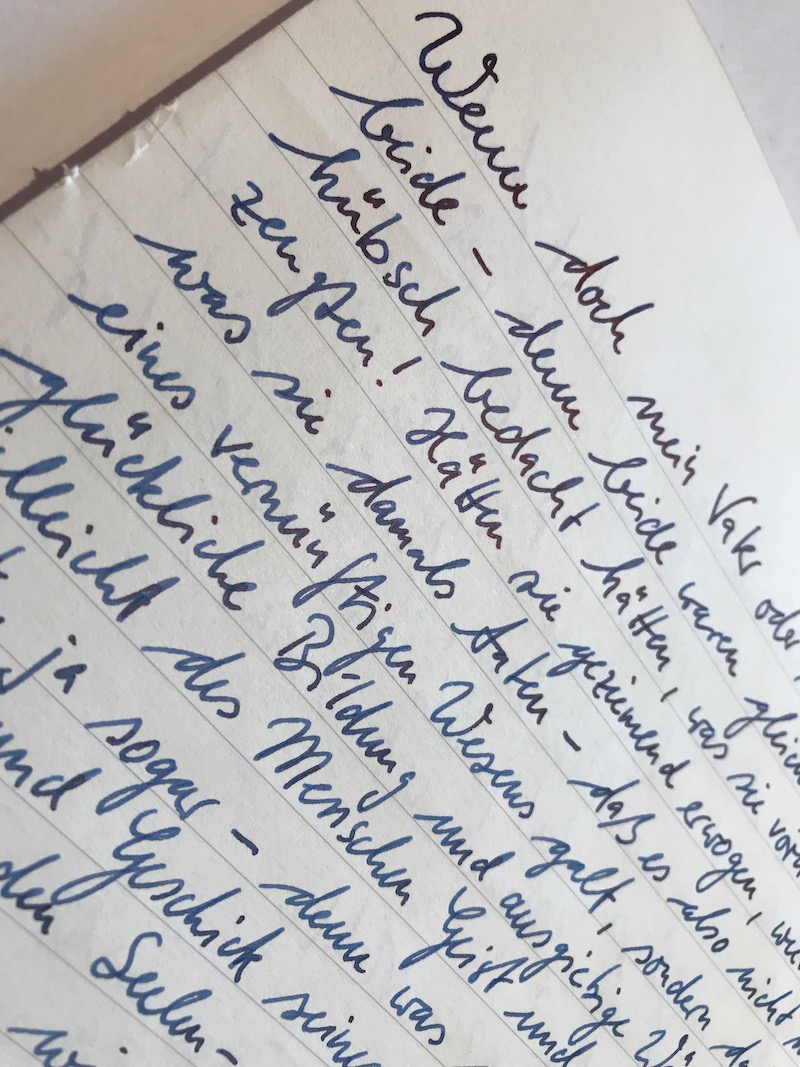 Wenn doch mein Vater oder
beide – denn beide waren
hübsch bedacht hätten, was sie
zeugten! Hätten sie geziemend erwogen,
was sie damals taten – daß es also nicht
eines vernünftigen Wesens galt, sondern
glückliche Bildung und ausgiebige
elleicht des Menschen Geist und
ja sogar – denn was
und Geschick seine
den Seelen-